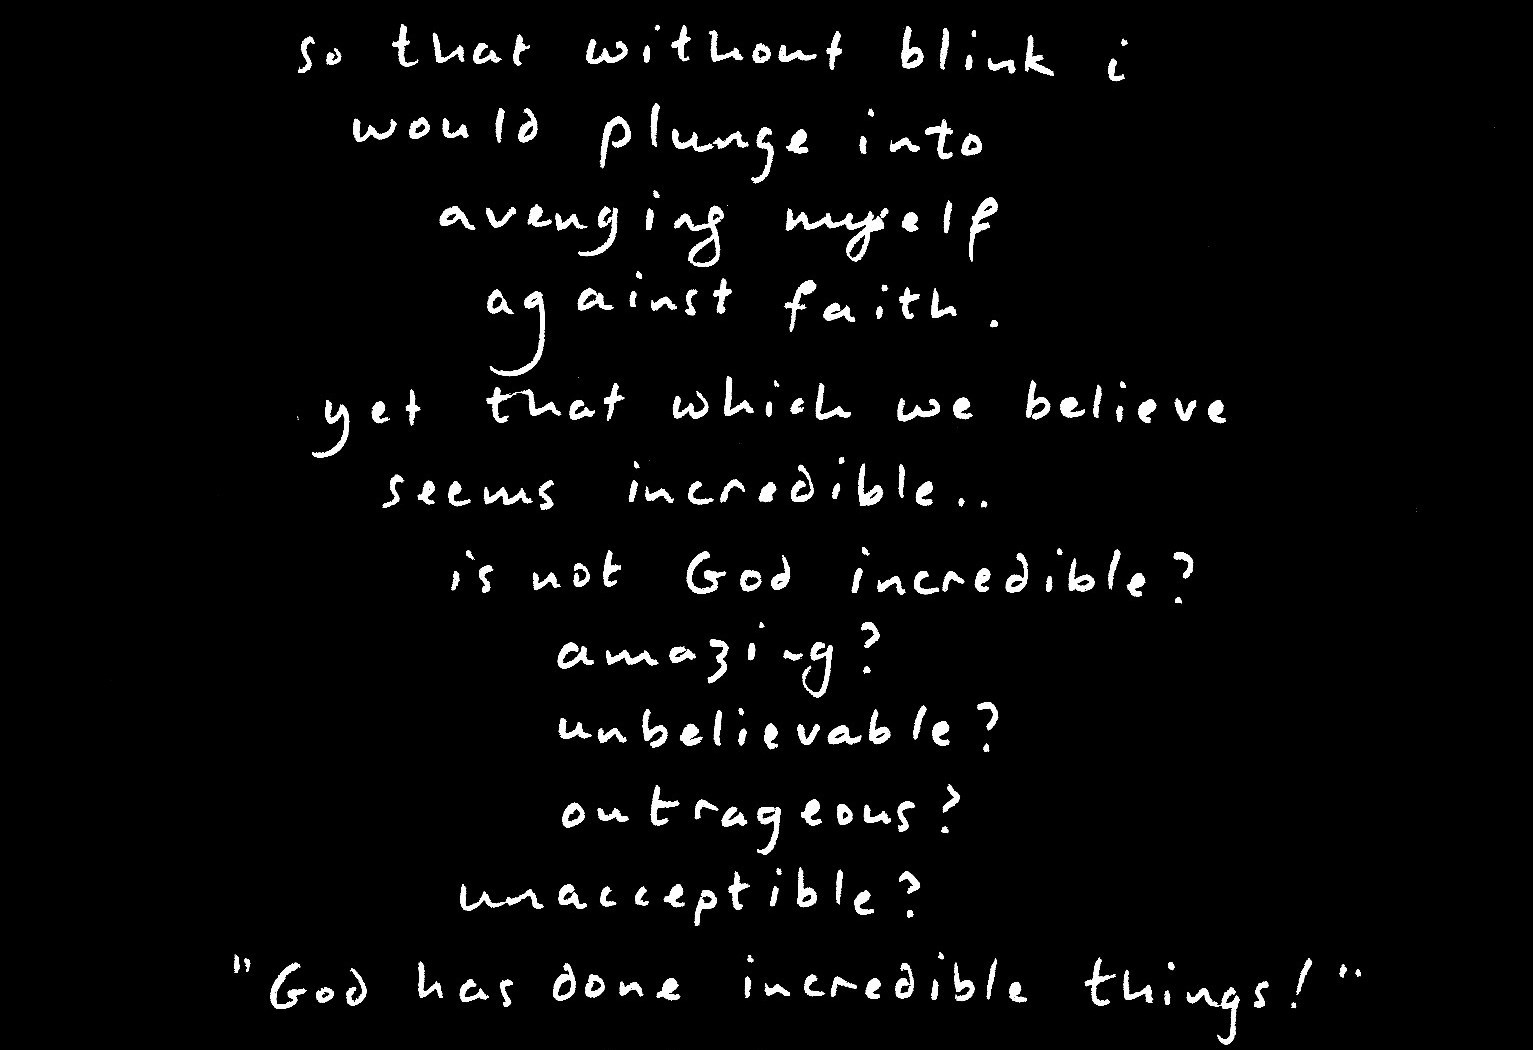 so that without blink i
would plunge into
avenging myself
against faith.
yet that which we believe
seems incredible..
is not God incredible?
amazing?
unbelievable?
outrageous?
unacceptible?
"God has done incredible things!"